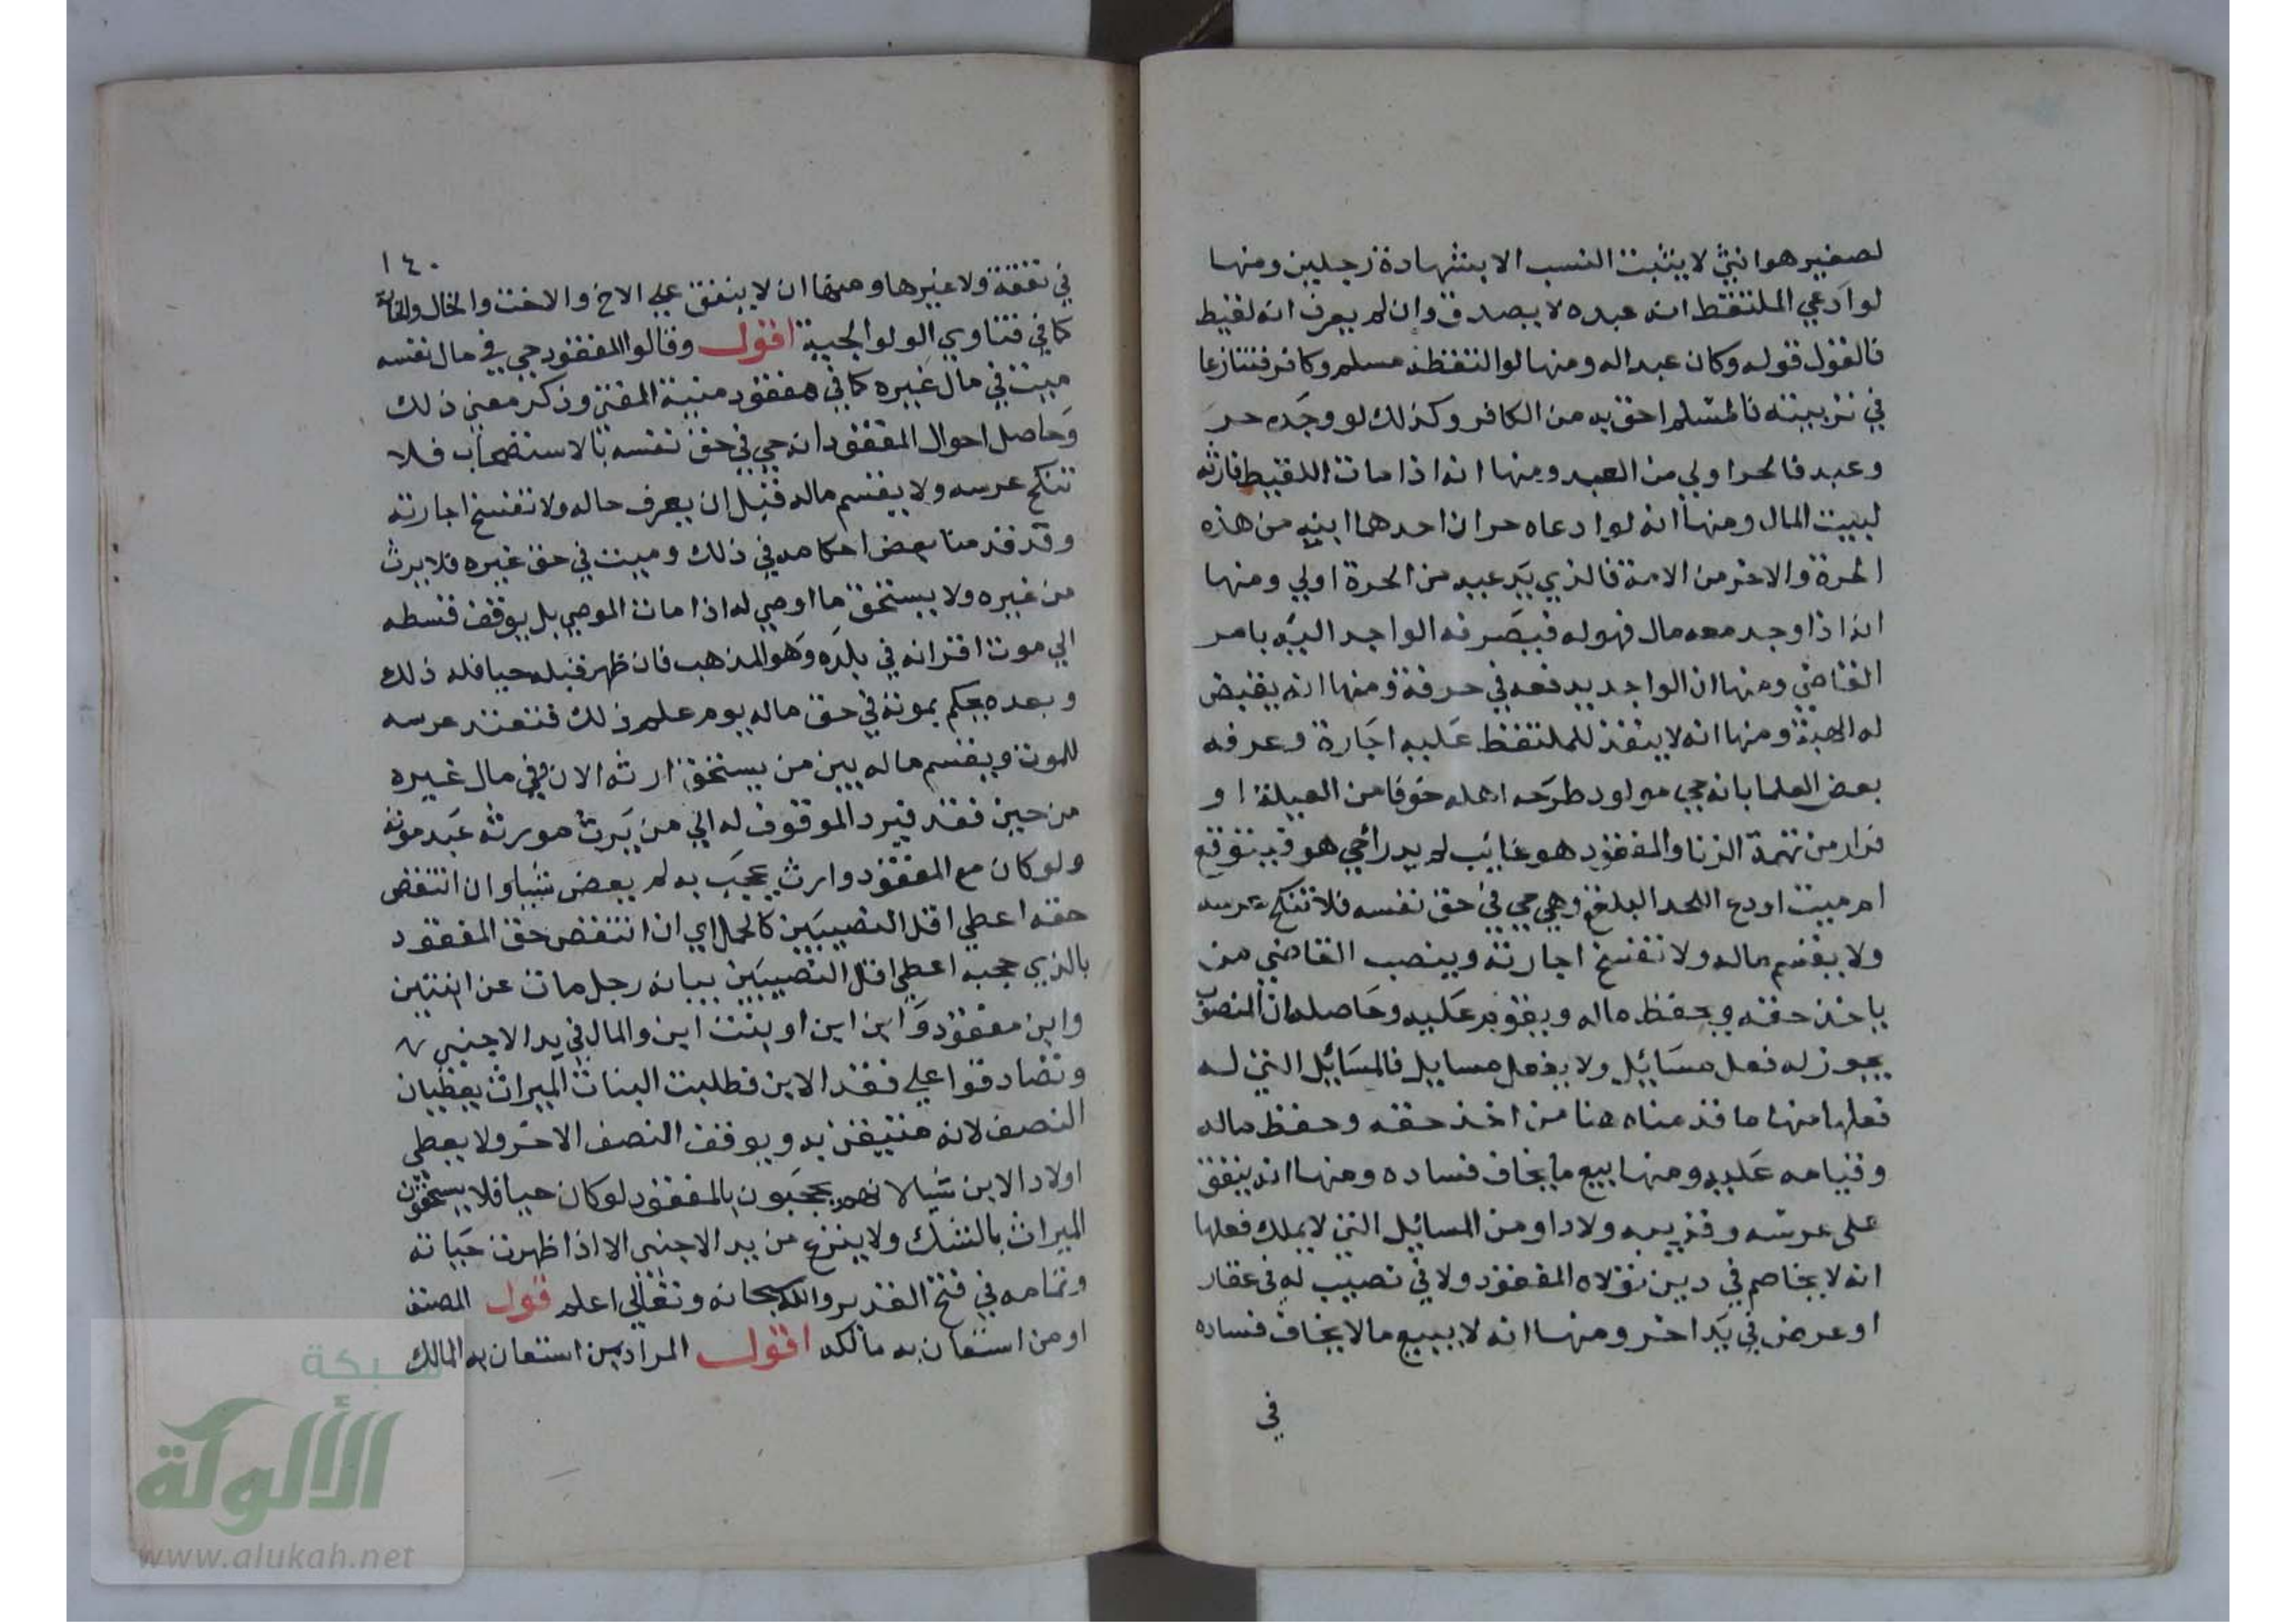 لصغير هو ابني لا يثبت النسب الا بشهادة رجلين ومنها
لو ادعي الملتقط انه عبده لا يصدق وان لم يعرف انه لقيط
فالقول قوله وكان عبدا له ومنها لو التقطه مسلم وكافر فتنازعا
في تربيته فالمسلم احق به من الكافر وكذلك لو وجده حر
وعبد فالحر اولي من العبد ومنها انه اذا مات اللقيط فارثه
لبيت المال ومنها انه لو ادعاه حران احدهما ابنه من هذه
الحرة والاخر من الامة فالذي يدعيه من الحرة اولي ومنها
انه اذا وجد معه مال فهو له فيصرفه الواجد اليه بامر
القاضي ومنها ان الواجد يدفعه في حرفة ومنها انه يقبض
له الهبة ومنها انه لا ينفذ للملتقط عليه اجارة وعرفه
بعض العلما بانه حي مولود طرحه اهله خوفا من العيلة او
فرار من تهمة الزنا والمفقود هو غايب لم يدر احي هو فيتوقع
ام ميت اودع اللحد البلقع وهي حي في حق نفسه فلا تنكح عرسه
ولا يقسم ماله ولا تفسخ اجارته وينصب القاضي من
ياخذ حقه ويحفظ ماله ويقوم عليه وحاصله ان المنصوب
يجوز له فعل مسائل ولا يفعل مسايل فالمسائل التي له
فعلها منها ما قدمناه هنا من اخذ حقه وحفظ ماله
وقيامه عليه ومنها بيع ما يخاف فساده ومنها انه ينفق
على عرسه وقريبه ولادا ومن المسائل التي لا يملك فعلها
انه لا يخاصم في دين تولاه المفقود ولا في نصيب له في عقار
او عرض في يد اخر ومنها انه لا يبيع ما لا يخاف فساده
في
١٤٠
في نفقة ولا غيرها ومنها ان لا ينفق علي الاخ والاخت والخال والخالة
كما في فتاوي الولوالجية اقول وقالوا المفقود حي في مال نفسه
ميت في مال غيره كما في مفقود منية المفتي وذكر معني ذلك
وحاصل احوال المفقود انه حي في حق نفسه بالاستصحاب فلا
تنكح عرسه ولا يقسم ماله قبل ان يعرف حاله ولا تفسخ اجارته
وقد قدمنا بعض احكامه في ذلك وميت في حق غيره فلا يرث
من غيره ولا يستحق ما اوصي له اذا مات الموصي بل يوقف قسطه
الي موت اقرانه في بلده وهو المذهب فان ظهر قبله حيا فله ذلك
وبعده يحكم بموته في حق ماله يوم علم ذلك فتعتد عرسه
للموت ويقسم ماله بين من يستحق ارثه الان وفي مال غيره
من حين فقد فيرد الموقوف له الي من يرث مورثه عند موته
ولو كان مع المفقود وارث يحجب به لم يعض شيا وان انتقض
حقه اعطي اقل النصيبين كالحمل اي ان انتقض حق المفقود
بالذي حجبه اعطي اقل النصيبين بيانه رجل مات عن ابنتين
وابن مفقود وابن ابن او بنت ابن والمال في يد الاجنبي
وتصادقوا علي فقد الابن فطلبت البنات الميراث يعطيان
النصف لانه متيقن به ويوقف النصف الاخر ولا يعطي
اولاد الابن شيا لانهم يحجبون بالمفقود لو كان حيا فلا يستحقون
الميراث بالشك ولا ينزع من يد الاجنبي الا اذا ظهرت خيانة
وتمامه في فتح القدير والله سبحانه وتعالي اعلم قول المصنف
او من استعان به مالكه اقول المراد من استعان به المالك
شبكة
الألوكة
www.alukah.net